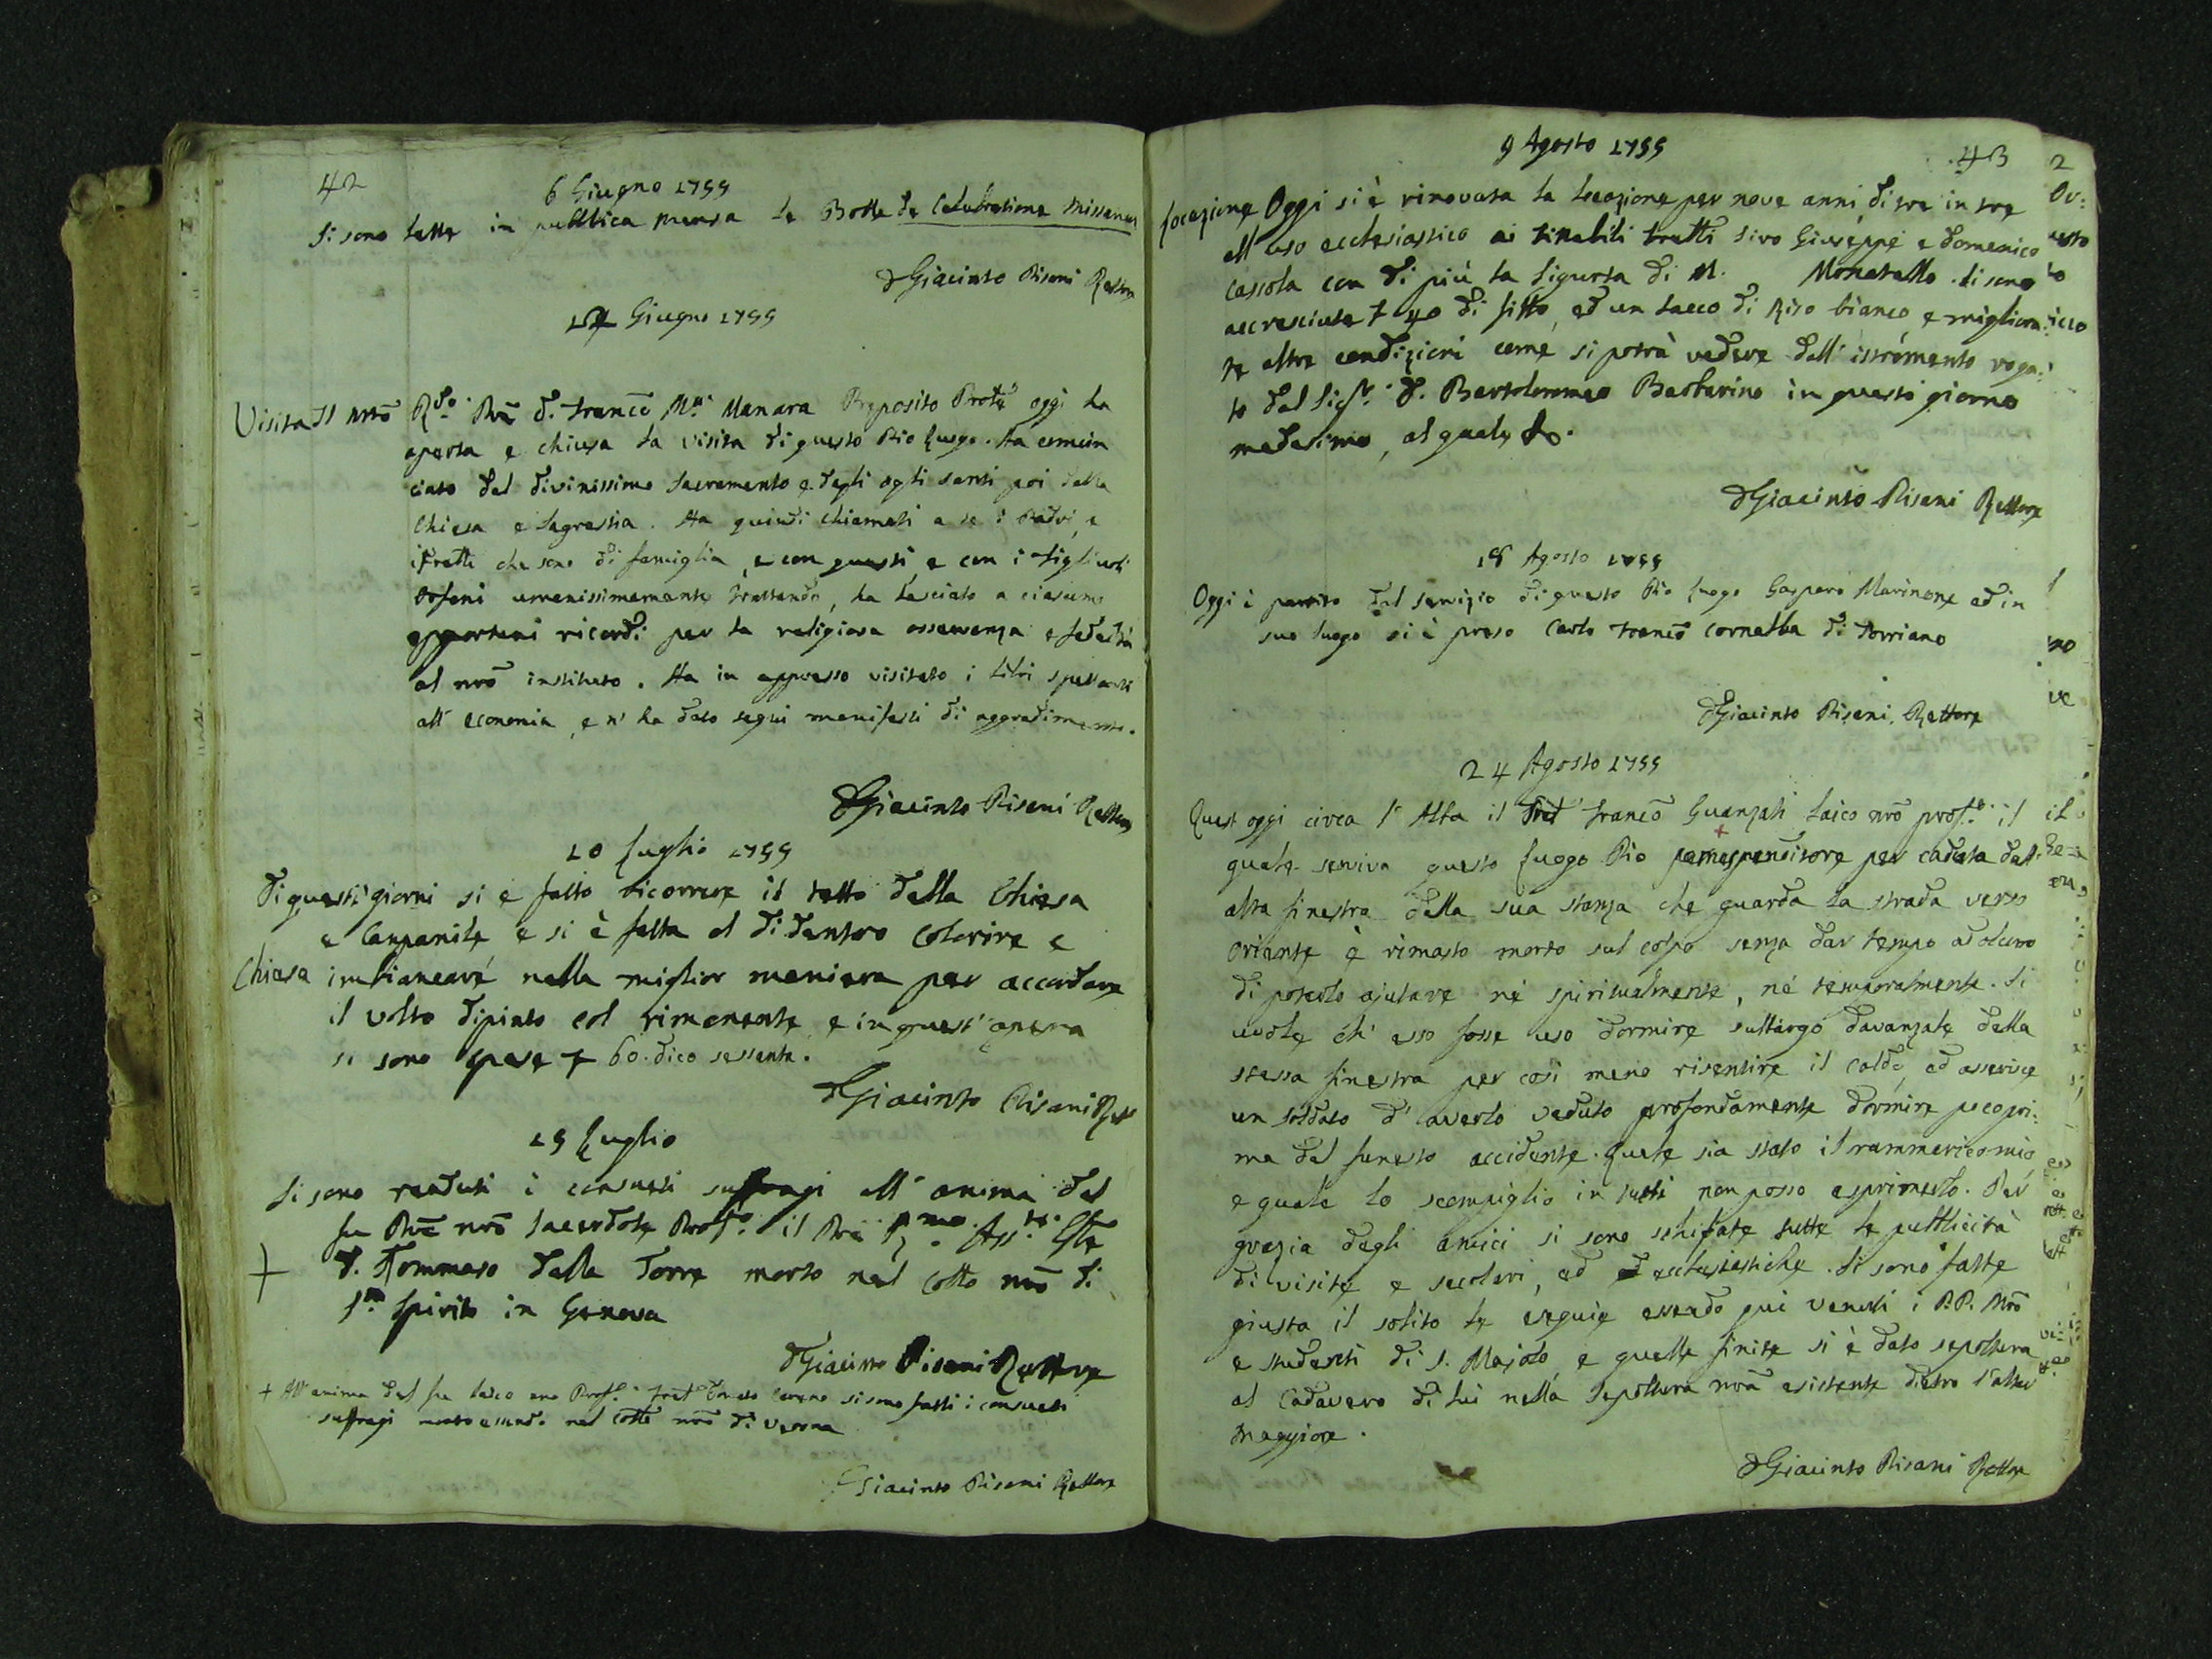 42
6 Giugno 1799
Si sono lette in pubblica mensa le Bolle de Celebratione Missarum
D Giacinto Pisani Rettore
Giugno 1799
Visita Il nrõ R.do Prẽ D. Francõ M.a Manara Preposito Prole oggi ha
aperta e chiusa la visita di questo Pio Luogo. Ha comin
ciato dal divinissimo Sacramento e dagli ogli santi poi dalla
Chiesa e Sagrestia. Ha quindi chiamati a se i Padri, e
i Fratti che sono di famiglia, e con questi, e con i figliuoli
Orfani umanissimamente trattando, ha lasciato a ciascuno
opportuni ricordi per la religiosa osservanza e fedeltà
al nrõ instituto. Ha in appresso visitato i libri spettanti
all' economia, e n' ha dato segni manifesti di aggradimento.
D Giacinto Pisani Rettore
10 Luglio 1799
Di questi giorni si è fatto ricorrere il tetto della Chiesa
e Campanile e si è fatta al di dentro colorire e
Chiesa imbiancare nella miglior maniera per accordare
il volto dipinto col rimanente e in quest' opera
si sono spese 60. dico sessanta.
D Giacinto Pisani Rett
19 Luglio
Si sono renduti i consueti suffragi all' anima del
fu Prẽ nrõ Sacerdote Prof.o il Prẽ R.mo
+ D. Tommaso dalla Torre morto nel Collo nrõ di
S.to Spirito in Genova
D Giacinto Pisani Rettore
+ All' anima del fu laico nrõ Prof.o frat Donato si sono fatti i consueti
suffragi morto essendo nel Collo nrõ di
D Giacinto Pisani Rettore
9 Agosto 1799
43
Locazione Oggi si è rinovata la locazione per nove anni di tre in tre
all' uso ecclesiastico ai fratti Giuseppe e Domenico
Cassola con di più la sigurtà di M. Monetallo. Si sono
accresciute 40 di fitto, ed un sacco di Riso bianco, e migliora:
te altre condizioni come si potrà vedere dall' istromento roga:
to dal Sig.r D. Bartolommeo Barbarino in questo giorno
medesimo, al quale &.
D Giacinto Pisani Rettore
18 Agosto 1799
Oggi è partito dal servizio di questo Pio Luogo Gaspare Marinone ed in
suo luogo si è preso Carlo Francõ Cornalba di Torriano
D Giacinto Pisani Rettore
24 Agosto 1799
Quest' oggi circa l' Alba il Frat Francõ Guanzati laico nrõ prof.o il
quale serviva questo Luogo Pio spenditore per caduta dall'
alta finestra della sua stanza che guarda la strada verso
oriente è rimasto morto sul colpo senza dar tempo ad alcuno
di poterlo ajutare nè spiritualmente, nè temporalmente. Si
vuole ch' esso fosse uso dormire sul largo davanzale della
stessa finestra per così meno risentire il caldo, ed asserisce
un soldato d' averlo veduto profondamente dormire poco pri:
ma del funesto accidente. Quale sia stato il rammarico mio
e quale lo scompiglio in tutti non posso esprimerlo. Per
grazia degli amici si sono schifate tutte le pubblicità
di visite e secolari, ed ecclesiastiche. Si sono fatte
giusta il solito le esequie essendo qui venuti i P.P. Nrõ
e studenti di S. Majolo, e quelle finite si è dato sepoltura
al Cadavero di lui nella sepoltura nrã esistente dietro l' altar
maggiore.
D Giacinto Pisani Rettore